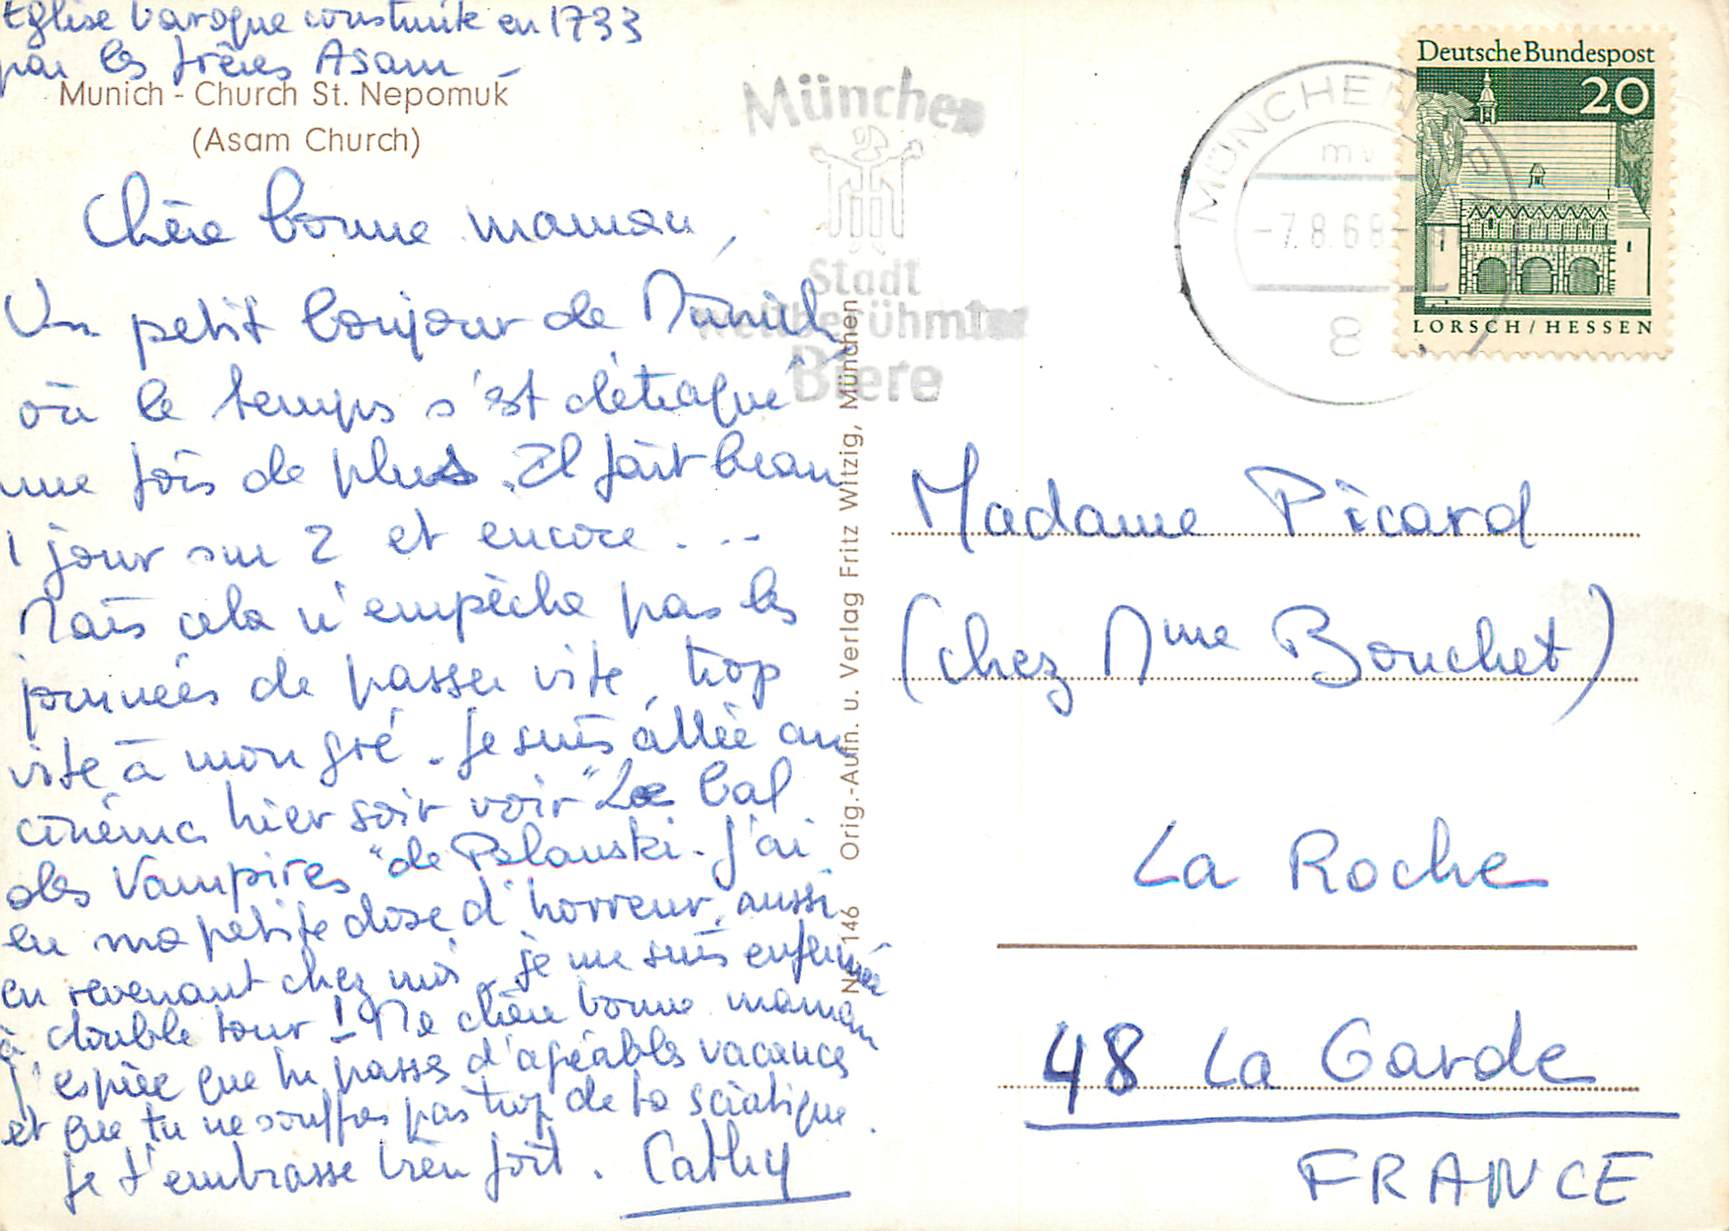 Eglise baroque construite en 1733
par les frères Asam -
Munich - Church St. Nepomuk
(Asam Church)
Chère bonne maman,
Un petit bonjour de Munich
où le temps s'est détraqué
une fois de plus. Il fait beau
1 jour sur 2 et encore ...
Mais cela n'empêche pas les
journées de passer vite, trop
vite à mon gré. Je suis allée au
cinéma hier soir voir "Le bal
des Vampires" de Polanski. J'ai
eu ma petite dose d'horreur, aussi
en revenant chez moi, je me suis enfermée
à double tour ! Ma chère bonne maman
j'espère que tu passes d'agréables vacances
et que tu ne souffres pas trop de ta sciatique.
Je t'embrasse bien fort. Cathy
Nr. 146 Orig.-Aufn. u. Verlag Fritz Witzig, München
München
Stadt
weltberühmter
Biere
MÜNCHEN
-7.8.68-
8
Deutsche Bundespost
20
LORSCH/HESSEN
Madame Picard
(chez Mme Bouchet)
La Roche
48 La Garde
FRANCE